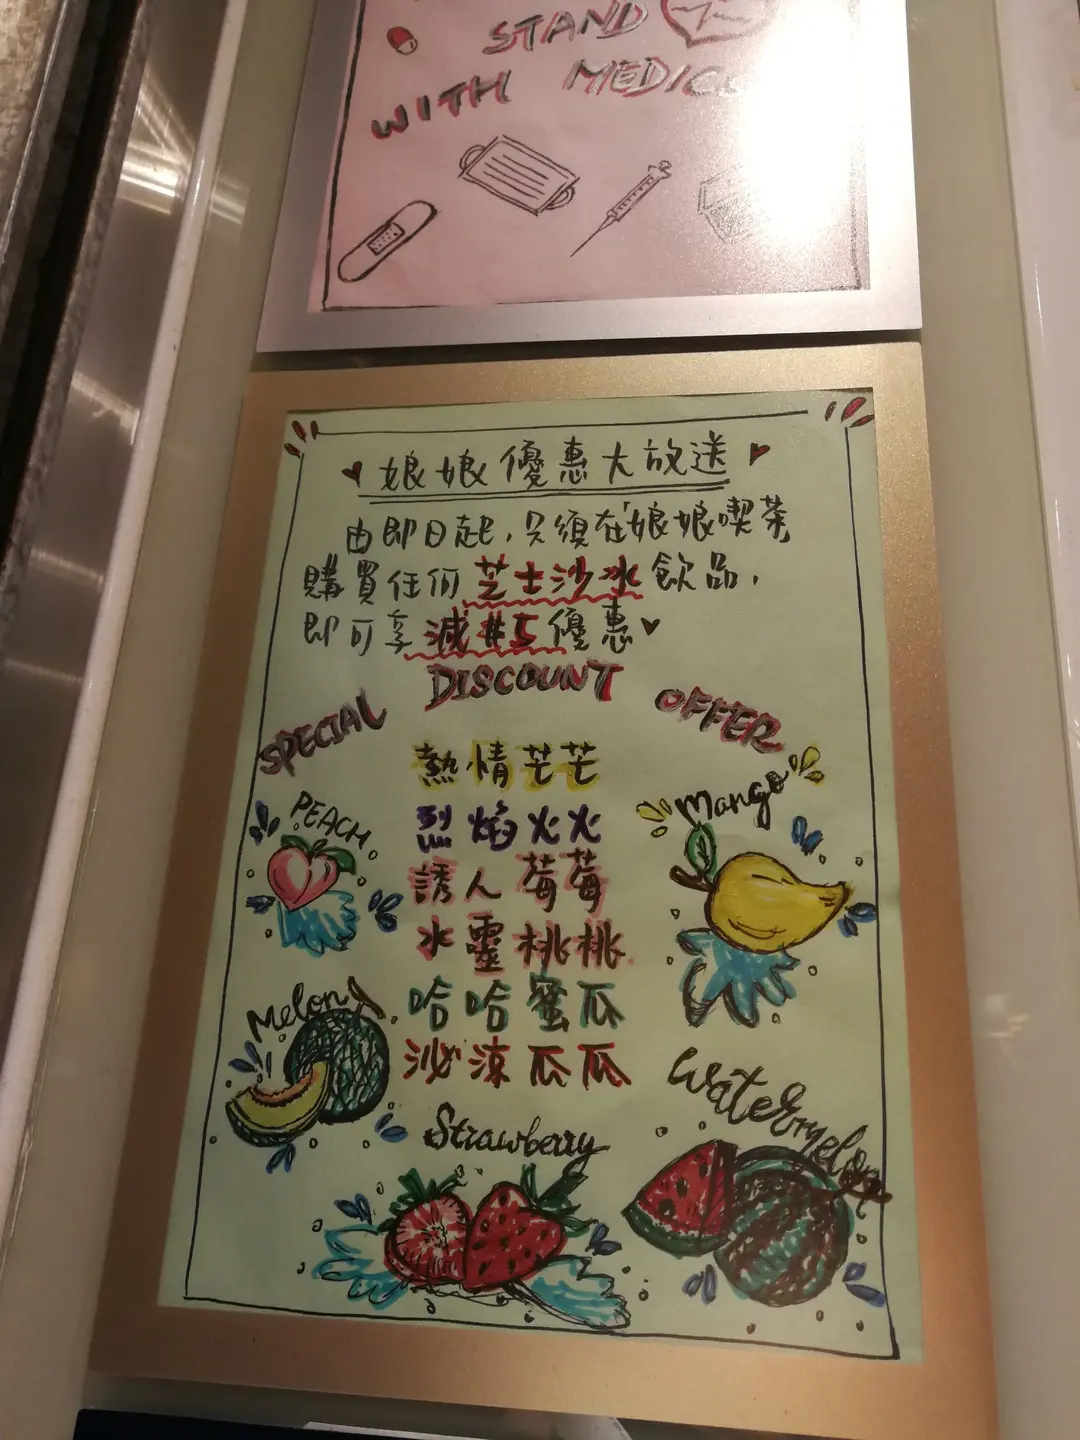 STAND
WITH MEDIC
娘娘優惠大放送
由即日起,只須在娘娘喫茶
購買任何芝士沙冰飲品,
即可享減$5優惠
SPECIAL DISCOUNT OFFER
熱情芒芒
烈焰火火
誘人莓莓
水靈桃桃
哈哈蜜瓜
沙涼瓜瓜
PEACH
Mango
Melon
Watermelon
Strawberry